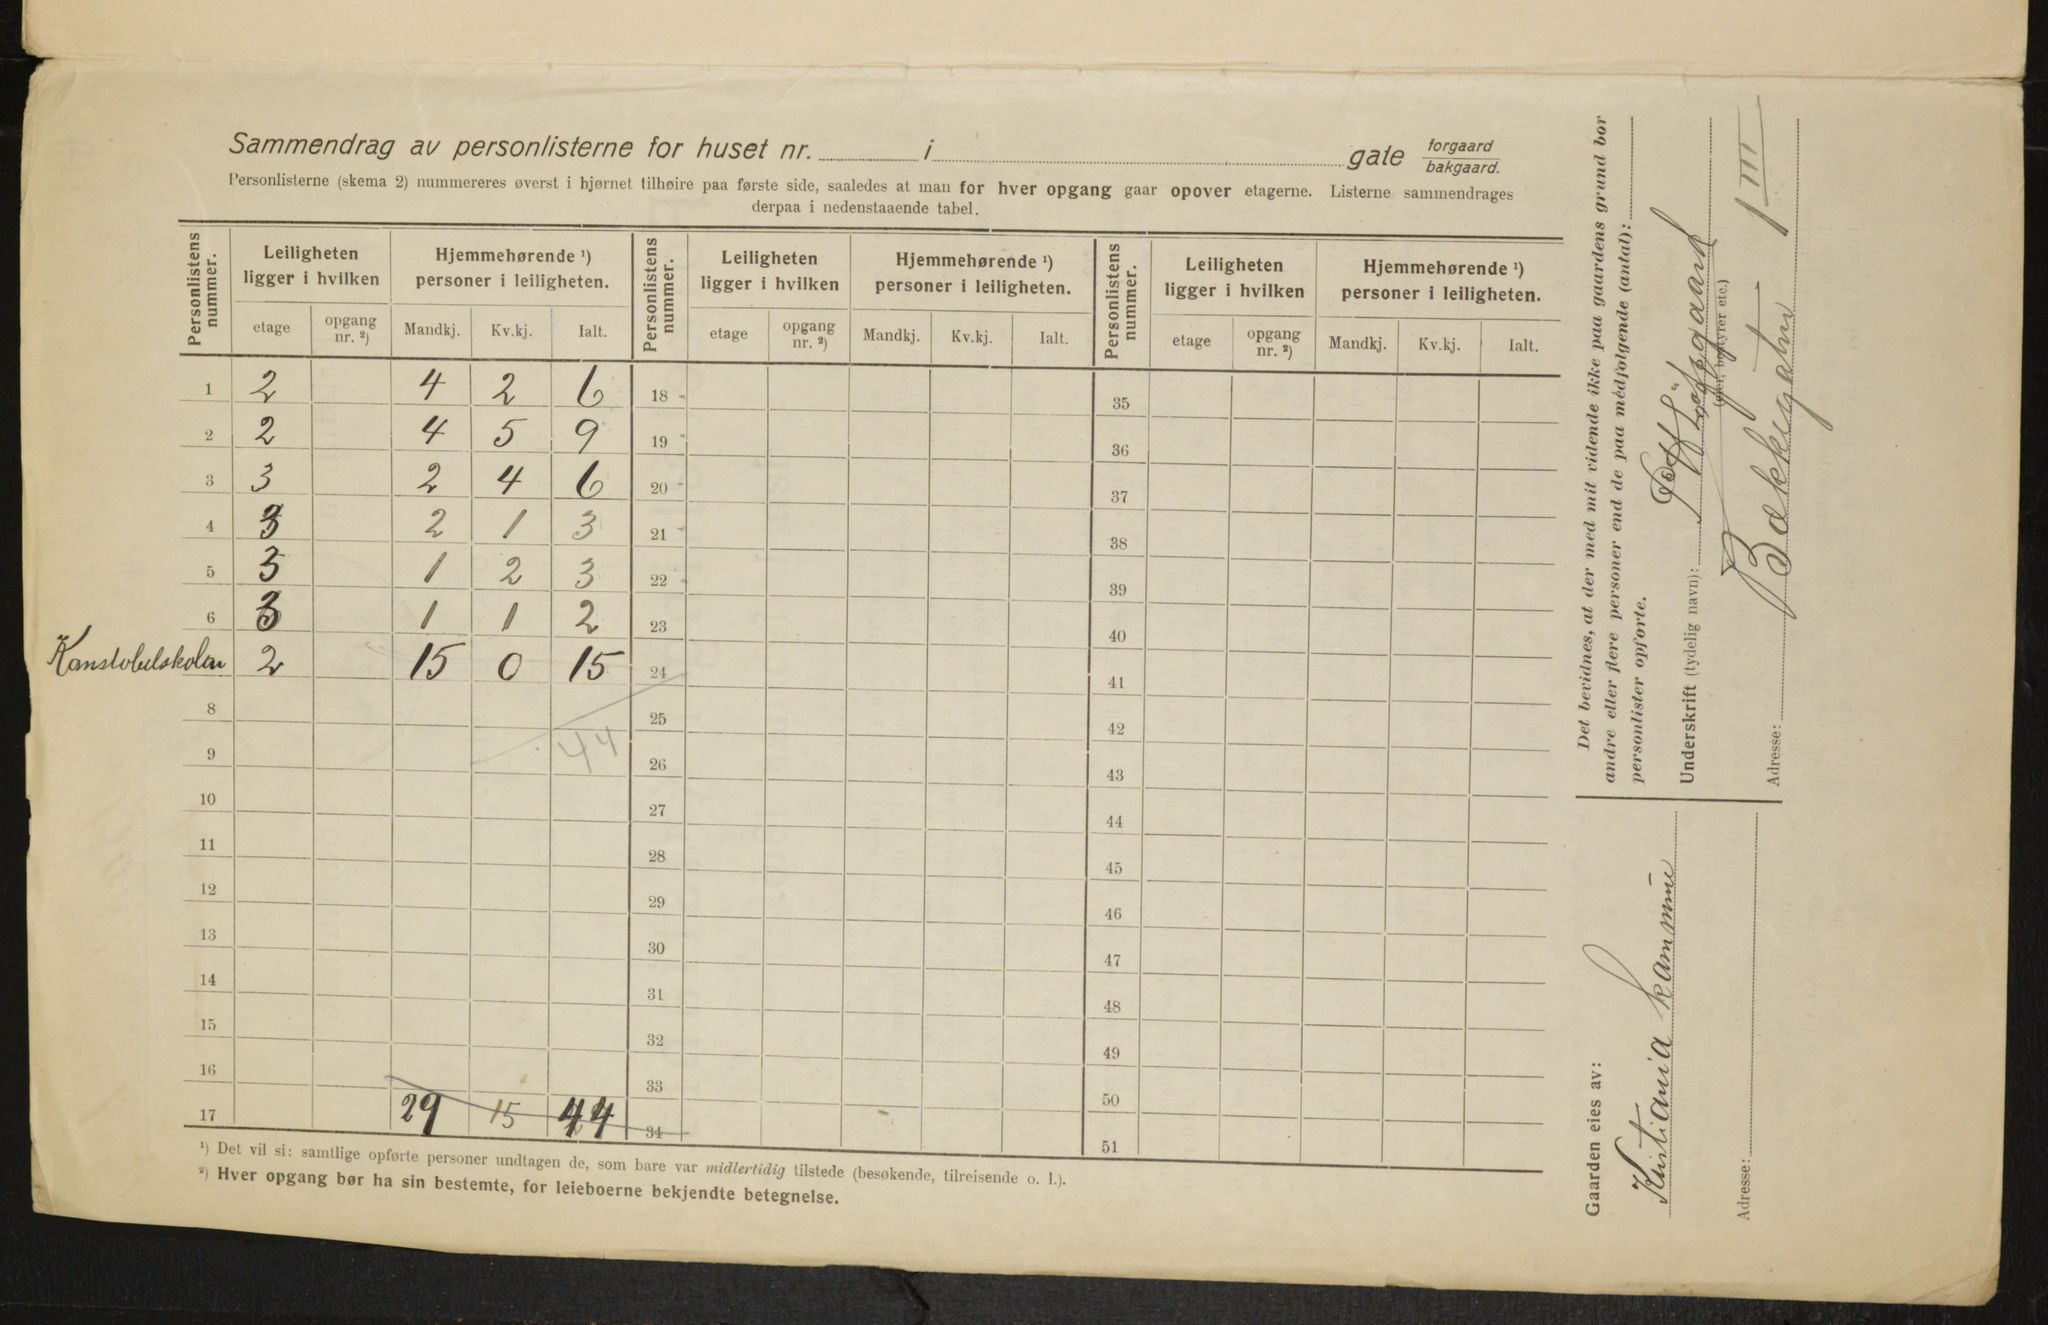 Sammendrag av personlisterne for huset nr. i gate forgaard bakgaard.
Personlisterne (skema 2) nummereres øverst i hjørnet tilhøire paa første side, saaledes at man for hver opgang gaar opover etagerne. Listerne sammendrages
derpaa i nedenstaaende tabel.
Personlistens nummer. Leiligheten ligger i hvilken Hjemmehørende ¹) personer i leiligheten. Personlistens nummer. Leiligheten ligger i hvilken Hjemmehørende ¹) personer i leiligheten. Personlistens nummer. Leiligheten ligger i hvilken Hjemmehørende ¹) personer i leiligheten.
etage opgang nr. ²) Mandkj. Kv.kj. Ialt. etage opgang nr. ²) Mandkj. Kv.kj. Ialt. etage opgang nr. ²) Mandkj. Kv.kj. Ialt.
1 2 4 2 6 18 35
2 2 4 5 9 19 36
3 3 2 4 6 20 37
4 3 2 1 3 21 38
5 3 1 2 3 22 39
6 3 1 1 2 23 40
Konstabelskolen 2 15 0 15 24 41
8 25 42
9 44 26 43
10 27 44
11 28 45
12 29 46
13 30 47
14 31 48
15 32 49
16 33 50
17 29 15 44 34 51
¹) Det vil si: samtlige opførte personer undtagen de, som bare var midlertidig tilstede (besøkende, tilreisende o. l.).
²) Hver opgang bør ha sin bestemte, for leieboerne bekjendte betegnelse.
Det bevidnes, at der med mit vidende ikke paa gaardens grund bor
andre eller flere personer end de paa medfølgende (antal):
personlister opførte.
Underskrift (tydelig navn):
(eier, bestyrer etc.)
Adresse: Bakkegaten 1 III
Gaarden eies av:
Kristiania kommune
Adresse: